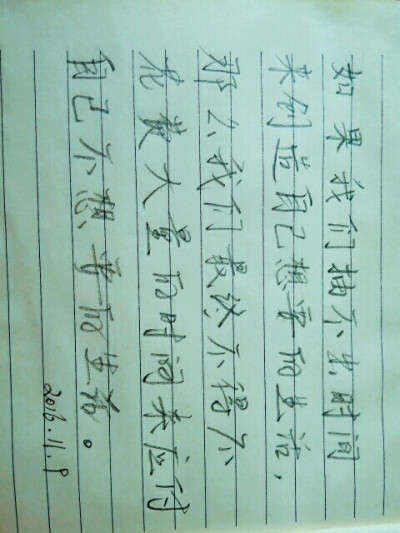 如果我们抽不出时间
来创造自己想要的生活,
那么我们最终不得不
花费大量的时间来应付
自己不想要的生活。
2016.11.9